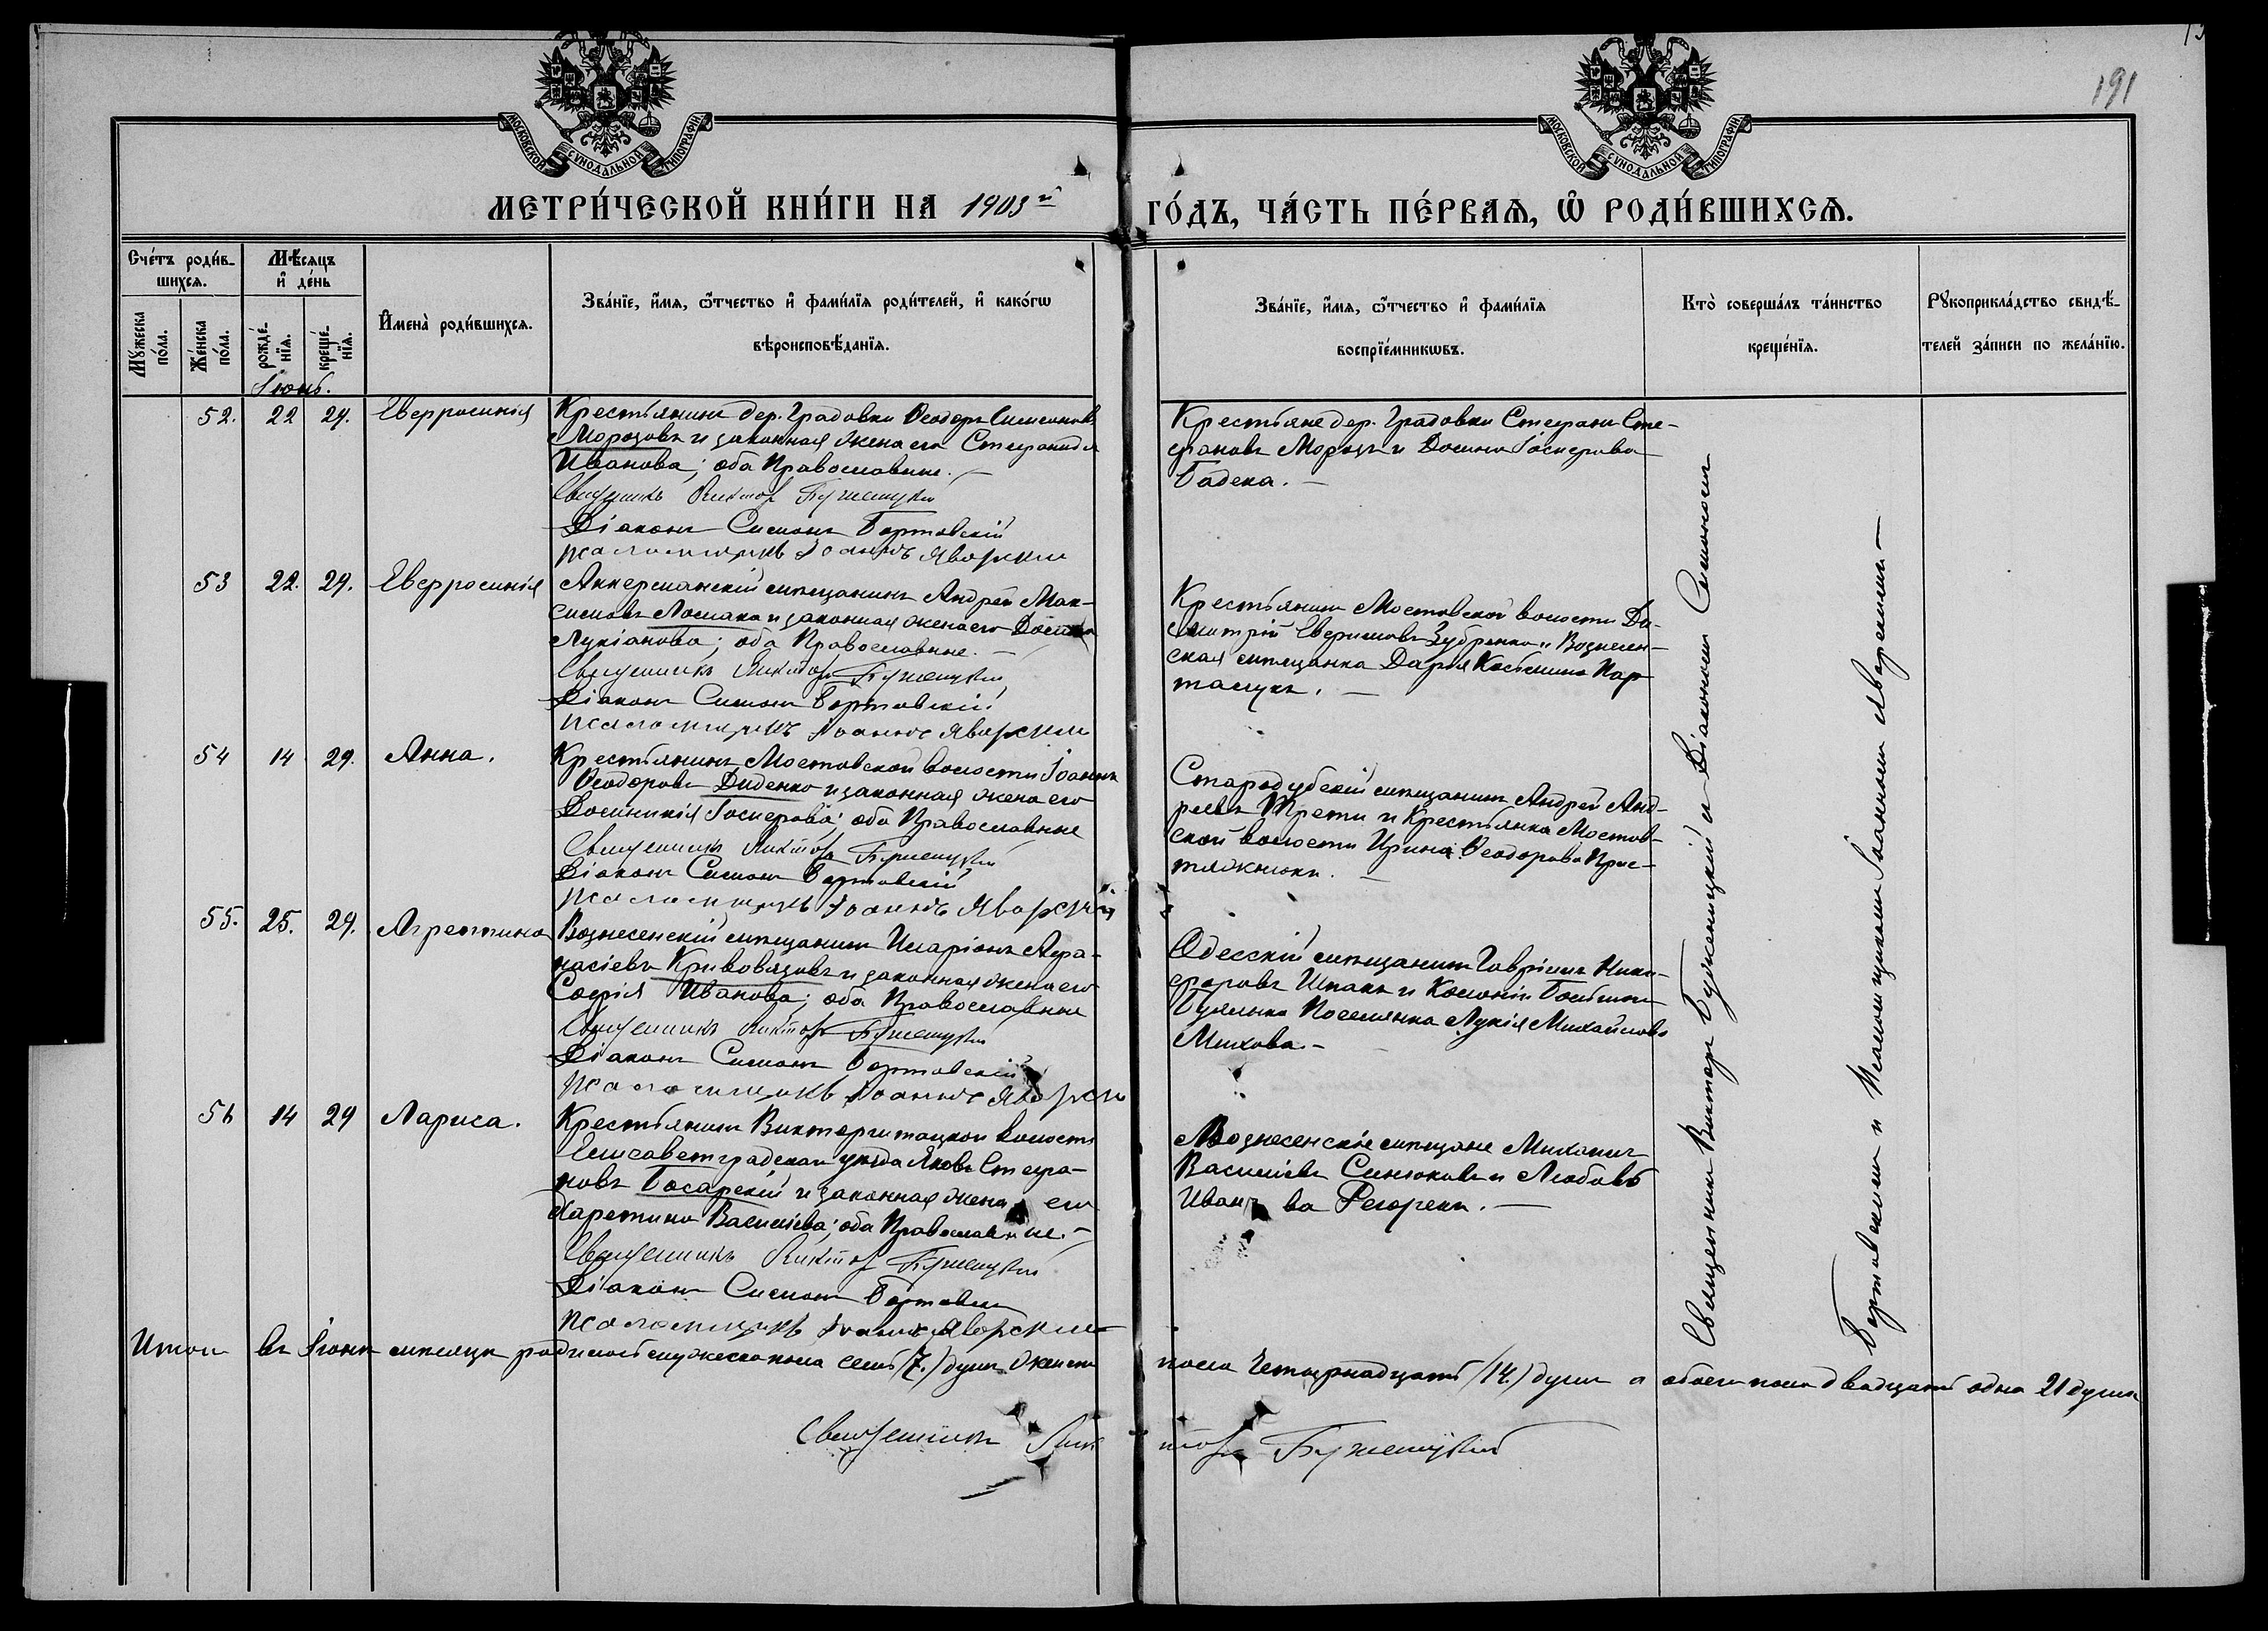 191
МОСКОВСКОЙ СѴНОДАЛЬНОЙ ТИПОГРАФІИ
МОСКОВСКОЙ СѴНОДАЛЬНОЙ ТИПОГРАФІИ
МЕТРИ́ЧЕСКОЙ КНИ́ГИ НА 1903й ГО́ДЪ, ЧА́СТЬ ПЕ́РВАЯ, Ѡ РОДИ́ВШИХСЯ.
Сче́тъ роди́в-
шихся.
Мѣ́сяцъ
и҆ де́нь
Мꙋ́жеска
по́ла.
Же́нска
по́ла.
рожде́-
нїя.
креще́-
нїя.
И҆мена̀ роди́вшихся.
Зва́нїе, и҆́мя, ѻ҆́тчество и҆ фами́лїя роди́телей, и҆ како́гѡ
вѣроисповѣ́данїя.
Зва́нїе, и҆́мя, ѻ҆́тчество и҆ фами́лїя
воспрїе́мникѡвъ.
Кто̀ соверша́лъ та́инство
креще́нїя.
Рꙋкоприкла́дство свидѣ́-
телей за́писи по жела́нїю.
Іюнь.
52. 22 29. Евфросинія
Крестьянинъ дер. Градовки Ѳеодоръ Симеоновъ
Морозовъ и законная жена его Стефанида
Иванова; оба Православные.
Священникъ Викторъ Буженицкій
Діаконъ Симонъ Бортовскій
псаломщикъ Іоаннъ Яворскій
Крестьяне дер. Градовки Стефанъ Сте-
фановъ Морозъ и Домна Іосифова
Бадека.
53 22. 29. Евфросинія
Аккерманскій мѣщанинъ Андрей Мак-
симовъ Ломака и законная жена его Домна
Лукіанова; оба Православные.
Священникъ Викторъ Буженицкій
Діаконъ Симонъ Бортовскій
псаломщикъ Іоаннъ Яворскій
Крестьянинъ Мостовской волости Ди-
митрій Евфимовъ Зубренко и Вознесен-
ская мѣщанка Дарія Косьмина Пар-
тащукъ.
54 14 29. Анна.
Крестьянинъ Мостовской волости Іоаннъ
Ѳеодоровъ Диденко и законная жена его
Домникія Іосифова; оба Православные
Священникъ Викторъ Буженицкій
Діаконъ Симонъ Бортовскій
псаломщикъ Іоаннъ Яворскій
Стародубскій мѣщанинъ Андрей Анд-
реевъ Трети и Крестьянка Мостов-
ской волости Ирина Ѳеодорова
55. 25. 29. Агреппина
Вознесенскій мѣщанинъ Иларіонъ Афа-
насіевъ Кривовязовъ и законная жена его
Софія Иванова; оба Православные
Священникъ Викторъ Буженицкій
Діаконъ Симонъ Бортовскій
псаломщикъ Іоаннъ Яворскій
Одесскій мѣщанинъ Гавріилъ Ники-
форовъ Шпакъ и Колоніи Большой
Буялыкъ Поселянка Лукія Михайлова
Михова.
56 14 29 Лариса.
Крестьянинъ Викторштацкой волости
Елисаветградскаго уѣзда Яковъ Стефа-
новъ Босарскій и законная жена его
Харитина Василіева; оба Православные.
Священникъ Викторъ Буженицкій
Діаконъ Симонъ Бортовскій
псаломщикъ Іоаннъ Яворскій
Вознесенскіе мѣщане Михаилъ
Василіевъ Синюковъ и Любовь
Иванова
Священникъ Викторъ Буженицкій съ Діакономъ Симономъ
Бортовскимъ и Псаломщикомъ Іоанномъ Яворскимъ.
Итого въ Іюнѣ мѣсяцѣ родилось мужеска пола семь /7./ душъ женска пола Четырнадцать /14./ душъ а обоего пола двадцать одна 21 душа
Священникъ Викторъ Буженицкій